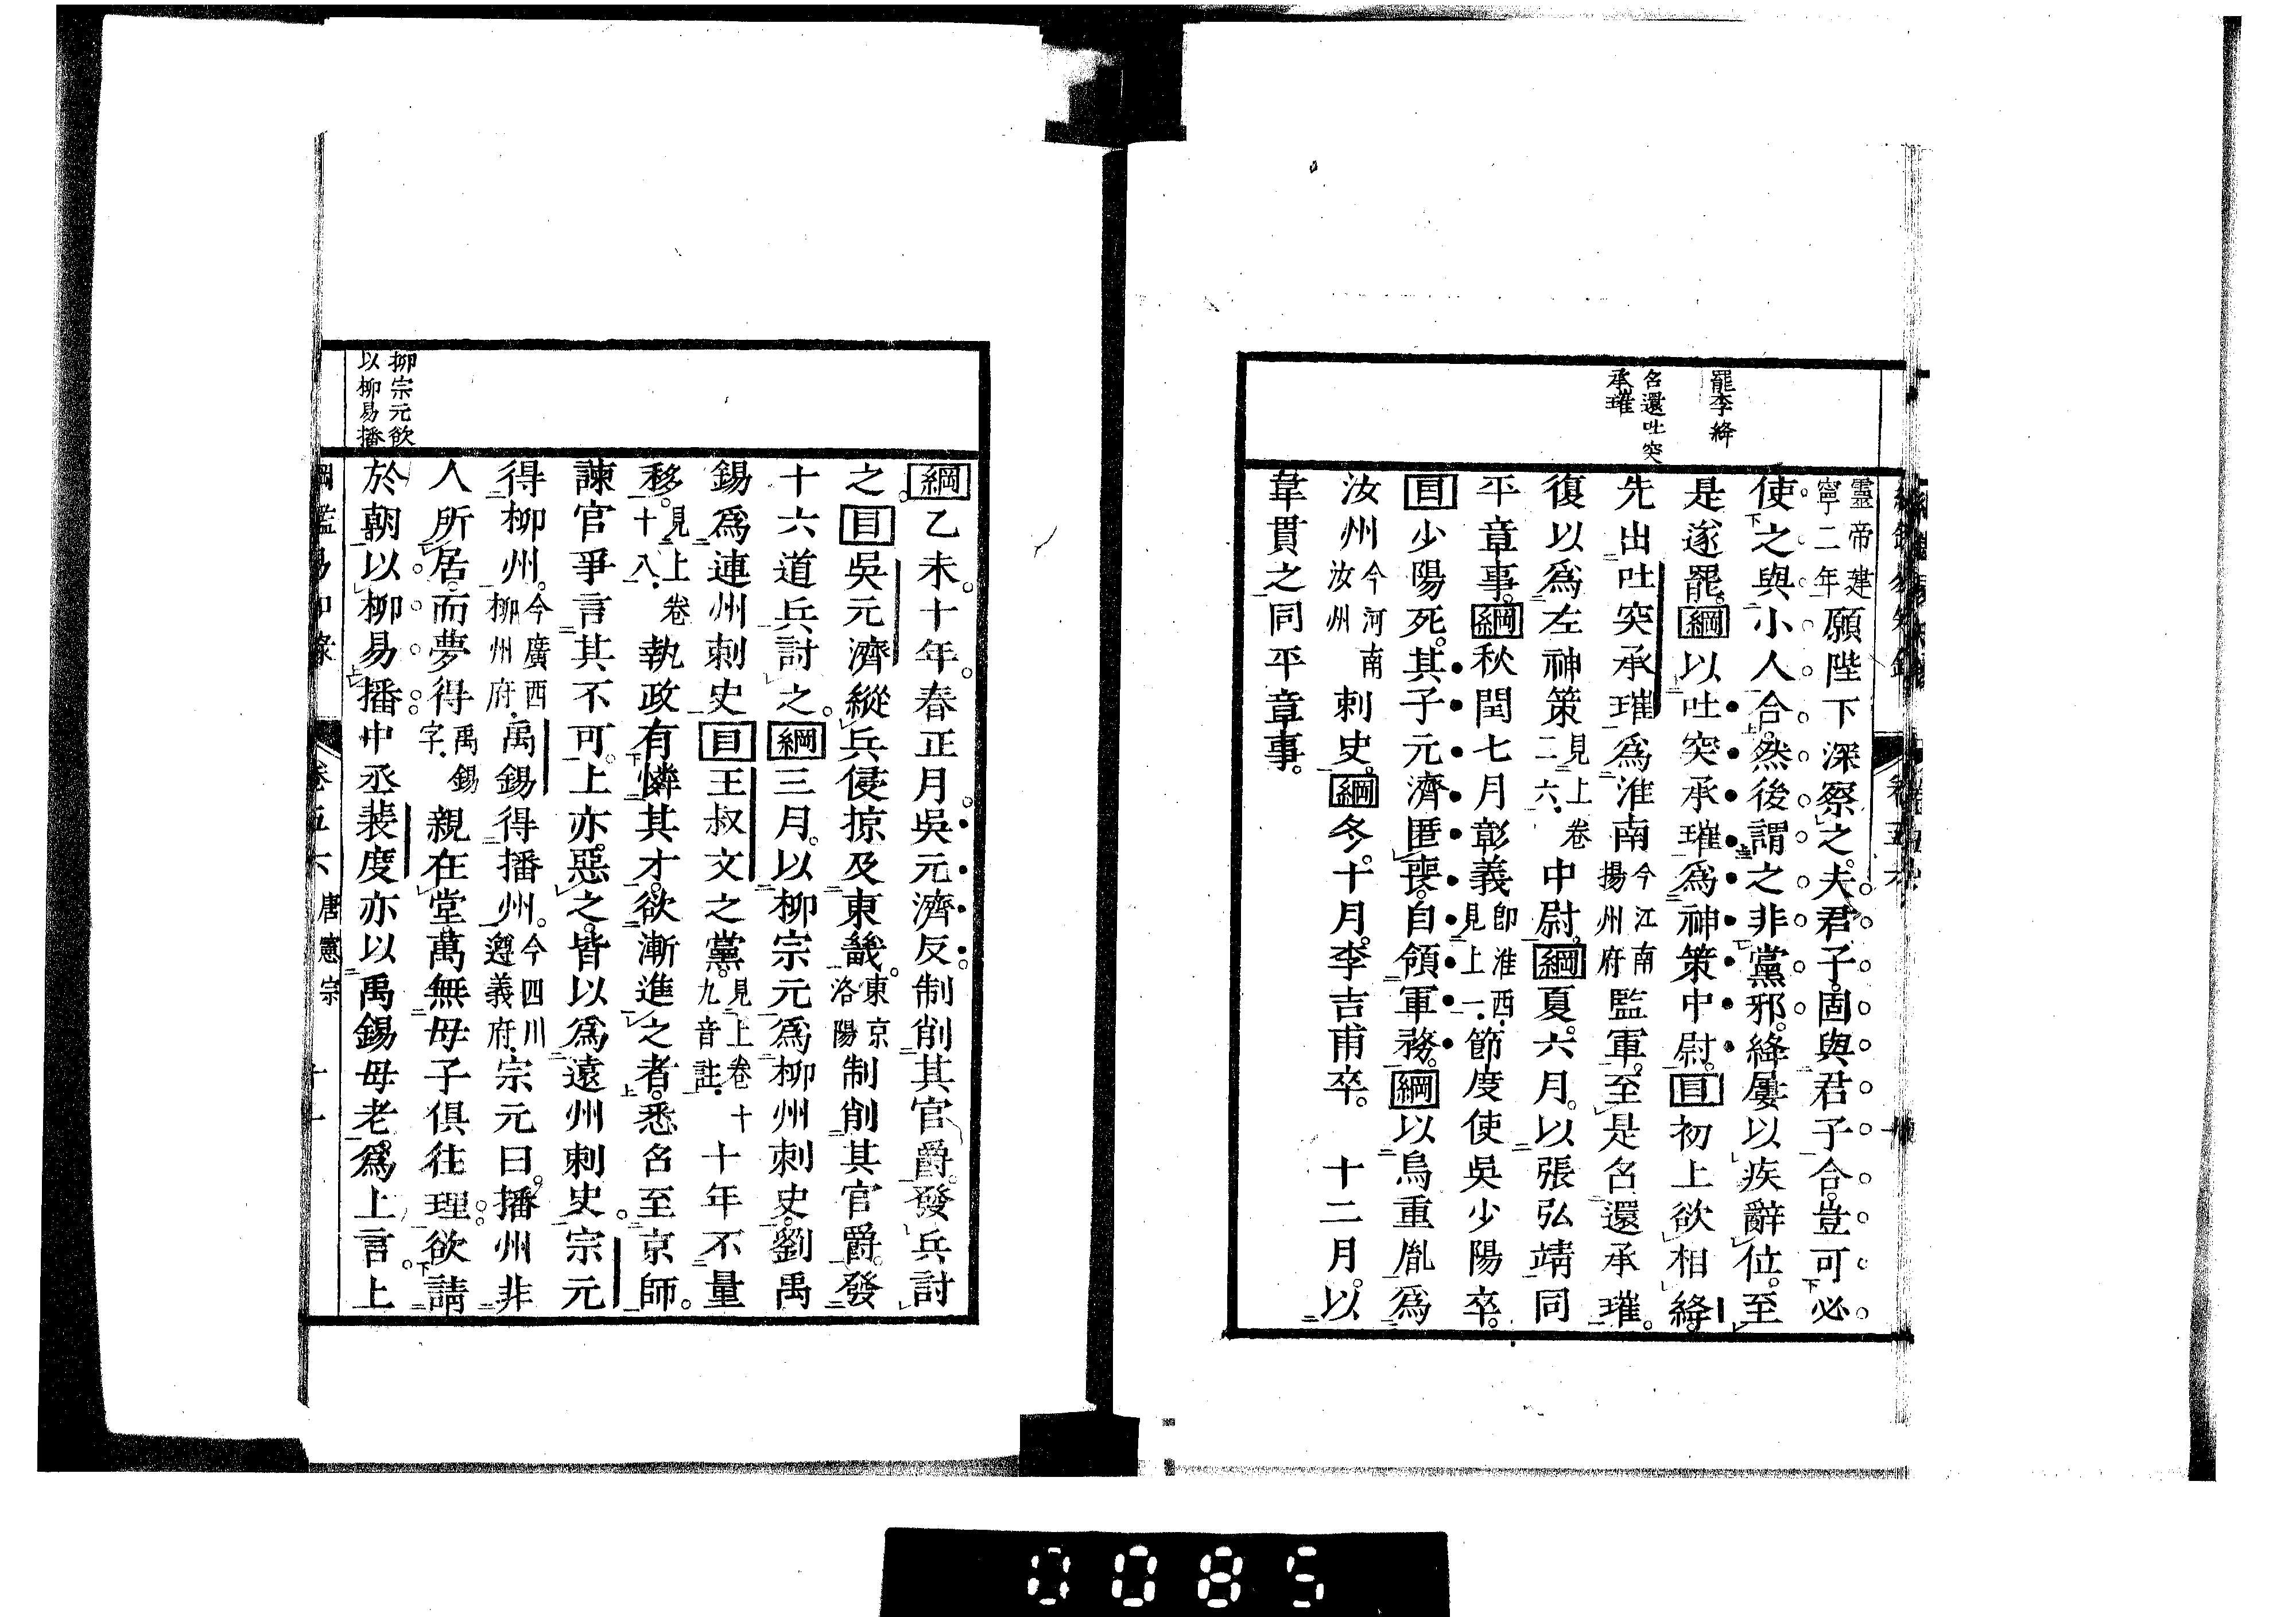 罷李絳
召還吐突
承璀
靈帝建
寧二年願陛下深察之。夫君子固與君子合。豈可必
使之與小人合。然後謂之非黨邪。絳屢以疾辭位。至
是遂罷。綱以吐突承璀爲神策中尉。目初上欲相絳。
先出吐突承璀爲淮南今江南揚州府監軍。至是召還承璀。
復以爲左神策見上卷二六。中尉。綱夏。六月。以張弘靖同
平章事。綱秋閏七月彰義即淮西。見上一。節度使吳少陽卒。
目少陽死。其子元濟匿喪。自領軍務。綱以烏重胤爲
汝州今河南汝州刺史。綱冬。十月。李吉甫卒。 十二月。以
韋貫之同平章事。
綱乙未。十年。春正月。吳元濟反。制削其官爵。發兵討
之。目吳元濟縱兵侵掠及東畿。東京洛陽制削其官爵。發
十六道兵討之。綱三月。以柳宗元爲柳州刺史。劉禹
錫爲連州刺史目王叔文之黨。見上卷十九音註。十年不量
移。見上卷十八。執政有憐其才。欲漸進之者。悉召至京師。
諫官爭言其不可。上亦惡之。皆以爲遠州刺史宗元
得柳州。今廣西柳州府。禹錫得播州。今四川遵義府。宗元曰。播州非
人所居。而夢得禹錫字。親在堂。萬無母子俱往理。欲請
於朝以柳易播。中丞裴度亦以禹錫母老。爲上言。上
柳宗元欲
以柳易播
綱鑑易知錄 卷五六 唐憲宗 十一
0085